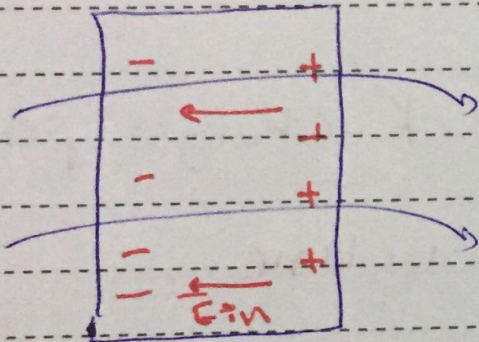 - +
+
- +
- +
-
Ein